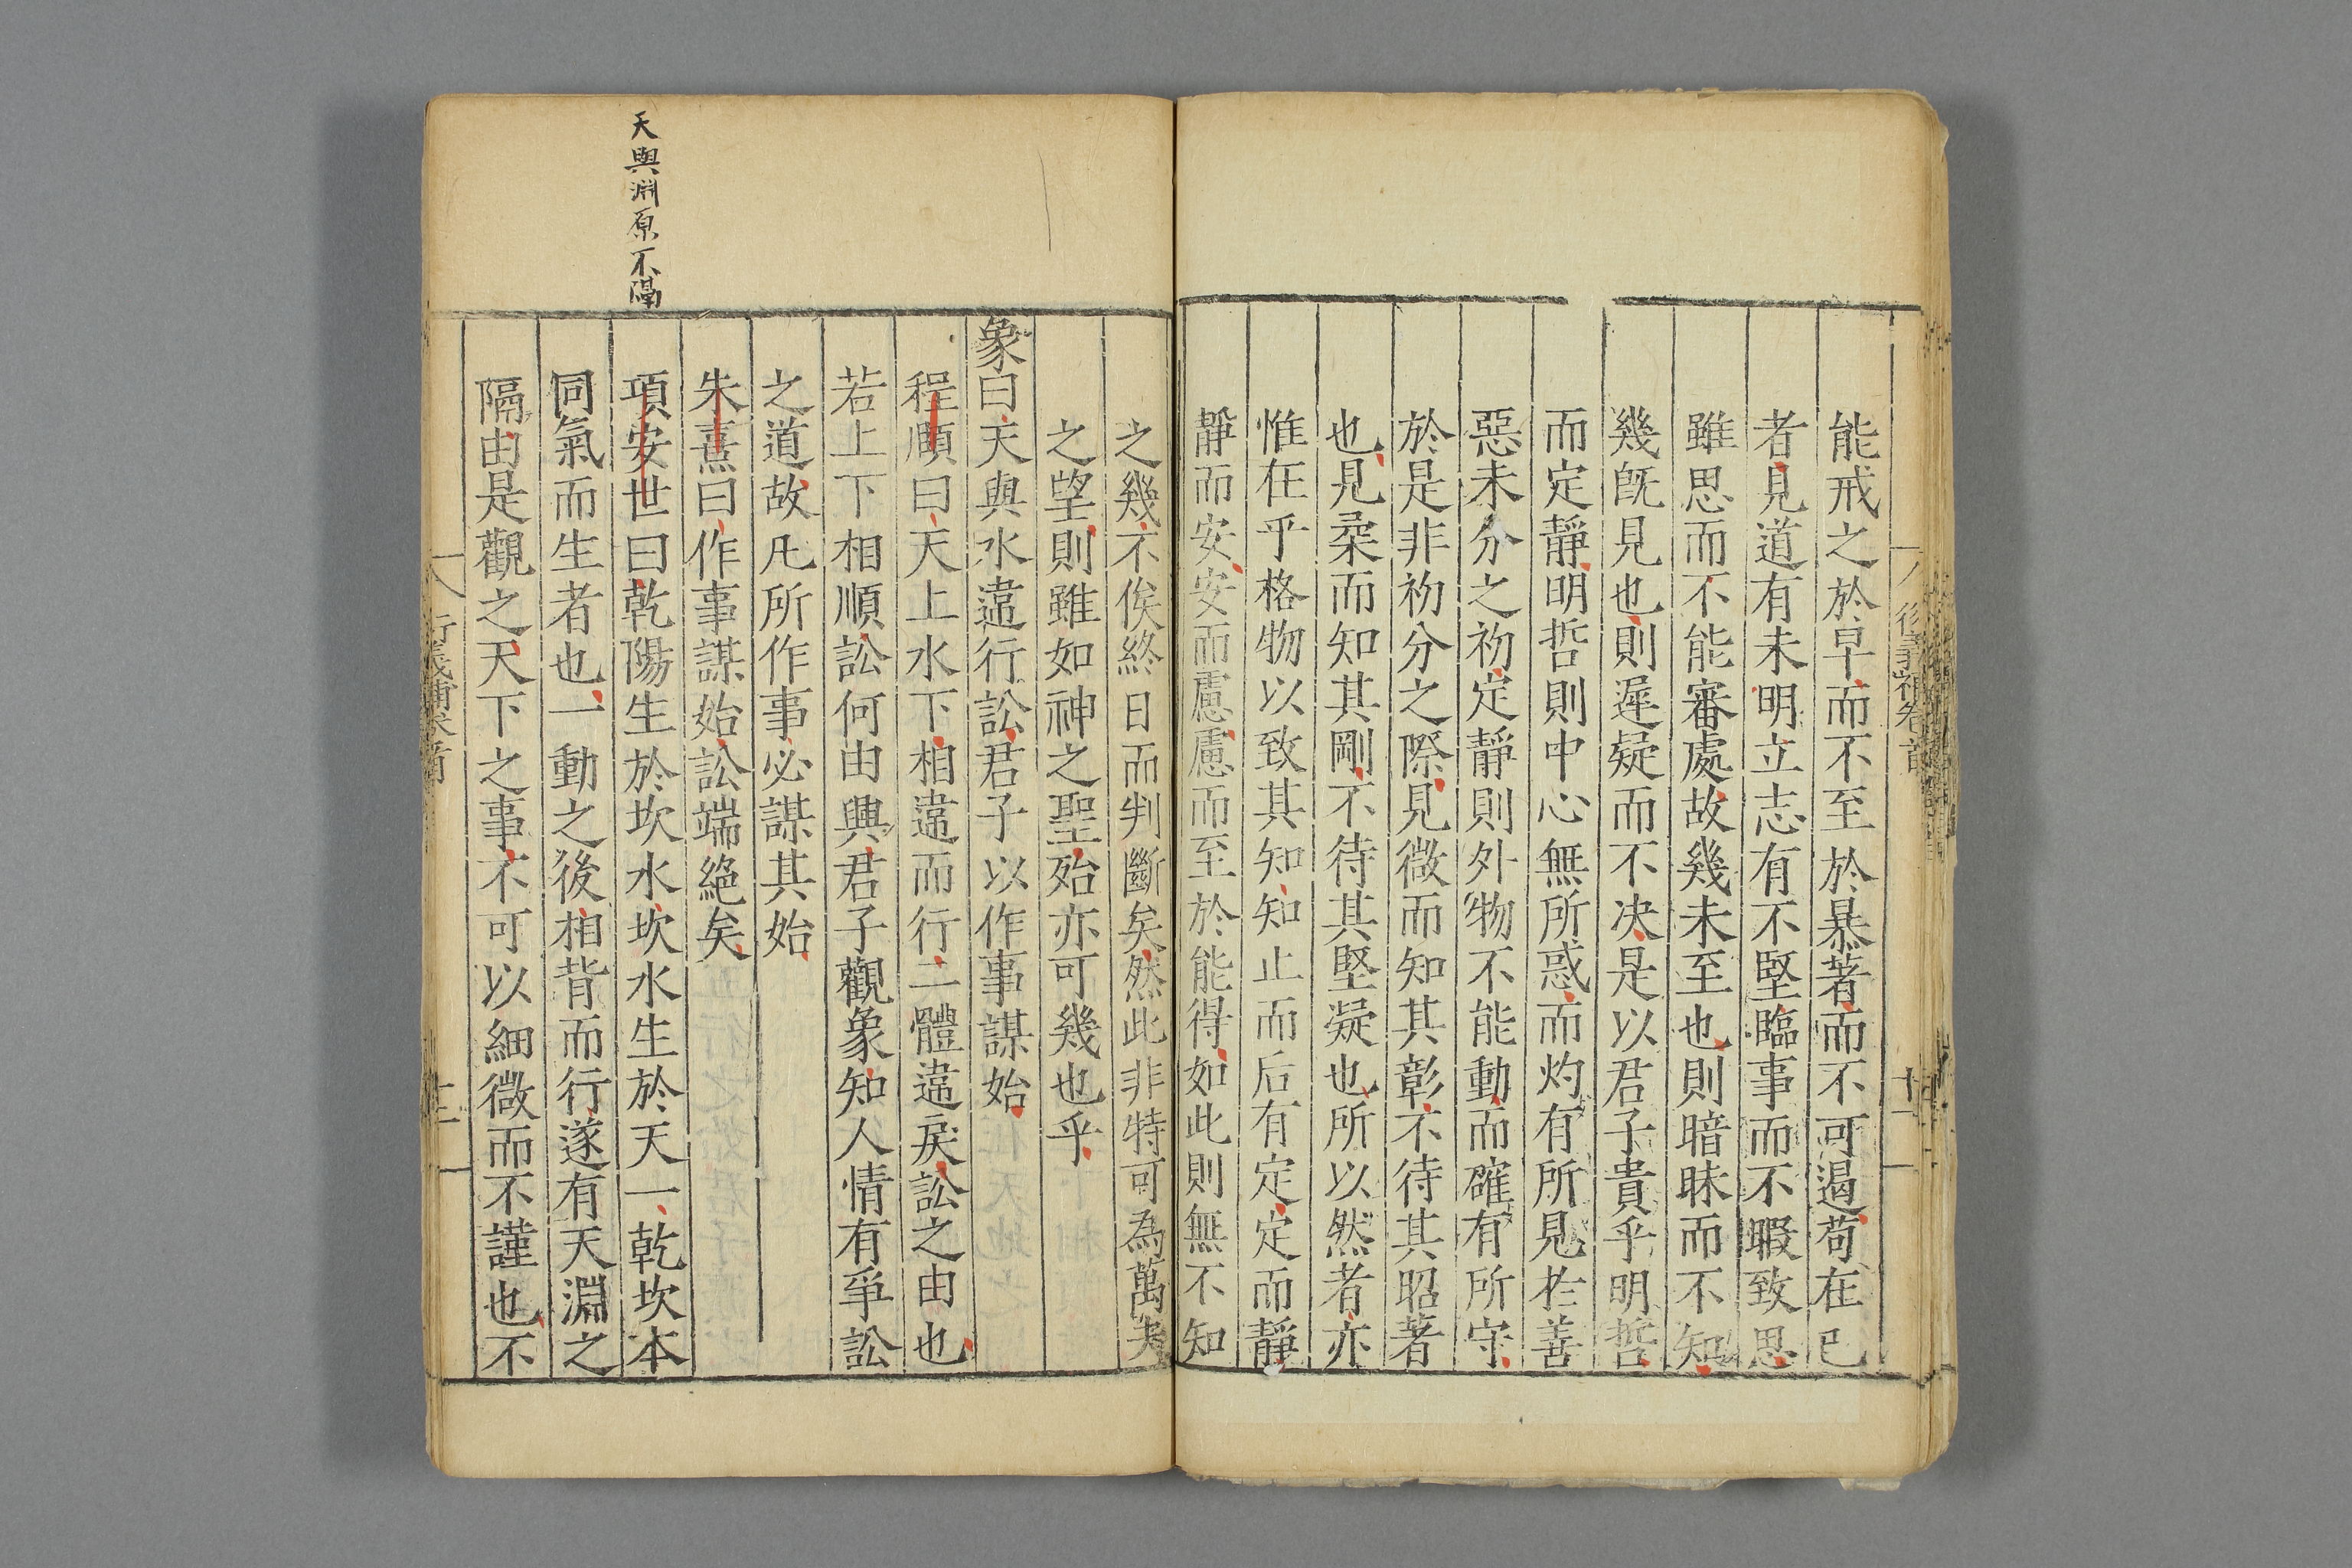 能戒之於早而不至於暴著而不可遏苟在已
者見道有未明立志有不堅臨事而不暇致思
雖思而不能審處故幾未至也則暗昧而不知
幾旣見也則遲疑而不决是以君子貴乎明哲
而定靜明哲則中心無所惑而灼有所見於善
惡未分之初定靜則外物不能動而確有所守
於是非初分之際見微而知其彰不待其昭著
也見柔而知其剛不待其堅凝也所以然者亦
惟在乎格物以致其知知止而后有定定而靜
靜而安安而慮慮而至於能得如此則無不知
之幾不俟終日而判斷矣然此非特可為萬夫
之望則雖如神之聖殆亦可幾也乎
象曰天與水違行訟君子以作事謀始
程頤曰天上水下相違而行二體違戾訟之由也
若上下相順訟何由興君子觀象知人情有爭訟
之道故凡所作事必謀其始
朱熹曰作事謀始訟端絕矣
項安世曰乾陽生於坎水坎水生於天一乾坎本
同氣而生者也一動之後相背而行遂有天淵之
隔由是觀之天下之事不可以細微而不謹也不
天與淵原不隔